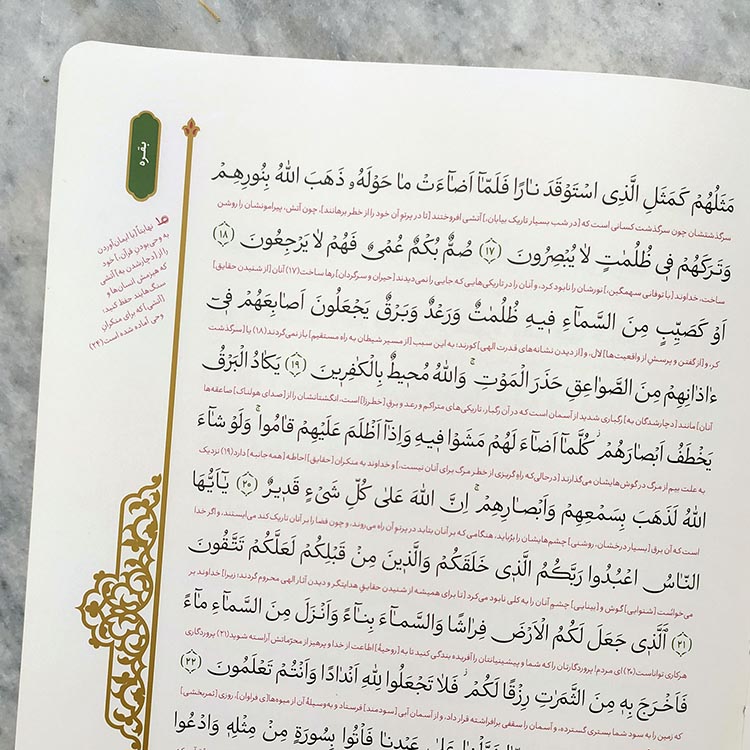 بقره
مَثَلُهُمْ كَمَثَلِ الَّذِي اسْتَوْقَدَ نارًا فَلَمّا اَضاءَتْ ما حَوْلَهُ ذَهَبَ اللهُ بِنُورِهِمْ
سرگذشتشان چون سرگذشت کسانی است که [در شب بسیار تاریک بیابان،] آتشی افروختند [تا در پرتو آن خود را از خطر برهانند]، چون آتش، پیرامونشان را روشن
وَتَرَكَهُمْ فِي ظُلُماتٍ لا يُبْصِرُونَ ﴿۱۷﴾ صُمٌّ بُكْمٌ عُمْيٌ فَهُمْ لا يَرْجِعُونَ ﴿۱۸﴾
ساخت، خداوند [با توفانی سهمگین،] نورشان را نابود کرد، و آنان را در تاریکی‌هایی که جایی را نمی‌دیدند [حیران و سرگردان] رها ساخت (۱۷) آنان [از شنیدن حقایق]
اَوْ كَصَيِّبٍ مِنَ السَّماءِ فِيهِ ظُلُماتٌ وَرَعْدٌ وَبَرْقٌ يَجْعَلُونَ اَصابِعَهُمْ فِي
کر، و [از گفتن و پرسش از واقعیت‌ها] لال، و [از دیدن نشانه‌های قدرت الهی] کورند؛ به این سبب [از مسیر شیطان به راه مستقیم] باز نمی‌گردند (۱۸) یا [سرگذشت
ءاذانِهِمْ مِنَ الصَّواعِقِ حَذَرَ الْمَوْتِ وَاللهُ مُحِيطٌ بِالْكافِرِينَ ﴿۱۹﴾ يَكادُ الْبَرْقُ
آنان] مانند [دچارشدگان به] رگباری شدید از آسمان است که در آن رگبار، تاریکی‌های متراکم و رعد و برقِ [خطرزا] است، انگشتانشان را از [صدای هولناک] صاعقه‌ها
يَخْطَفُ اَبْصارَهُمْ كُلَّما اَضاءَ لَهُمْ مَشَوْا فِيهِ وَاِذا اَظْلَمَ عَلَيْهِمْ قامُوا وَلَوْ شاءَ
به علت بیم از مرگ در گوش‌هایشان می‌گذارند [درحالی‌که راه گریزی از خطر مرگ برای آنان نیست،] و خداوند به منکران [حقایق] احاطهٔ [همه‌جانبه] دارد (۱۹) نزدیک
اللهُ لَذَهَبَ بِسَمْعِهِمْ وَاَبْصارِهِمْ اِنَّ اللهَ عَلىٰ كُلِّ شَيْءٍ قَدِيرٌ ﴿۲۰﴾ يا اَيُّهَا
است که آن برق [بسیار درخشان، روشنی] چشم‌هایشان را برُباید، هنگامی که بر آنان بتابد در پرتو آن راه می‌روند، و چون فضا را بر آنان تاریک کند می‌ایستند، و اگر خدا
النّاسُ اعْبُدُوا رَبَّكُمُ الَّذِي خَلَقَكُمْ وَالَّذِينَ مِنْ قَبْلِكُمْ لَعَلَّكُمْ تَتَّقُونَ
می‌خواست [شنوایی] گوش و [بینایی] چشمِ آنان را به کلی نابود می‌کرد [تا برای همیشه از شنیدن حقایقِ هدایتگر و دیدن آثار الهی محروم گردند؛ زیرا] خداوند بر
﴿۲۱﴾ اَلَّذِي جَعَلَ لَكُمُ الْاَرْضَ فِراشًا وَالسَّماءَ بِناءً وَاَنْزَلَ مِنَ السَّماءِ ماءً
هر کاری تواناست (۲۰) ای مردم! پروردگارتان را که شما و پیشینیانتان را آفریده بندگی کنید تا به [روحیهٔ] اطاعت از خدا و پرهیز از محرّماتش آراسته شوید (۲۱) پروردگاری
فَاَخْرَجَ بِهِ مِنَ الثَّمَراتِ رِزْقًا لَكُمْ فَلا تَجْعَلُوا لِلّٰهِ اَنْدادًا وَاَنْتُمْ تَعْلَمُونَ ﴿۲۲﴾
که زمین را به سود شما بستری گسترده، و آسمان را سقفی برافراشته قرار داد، و از آسمان آبی [سودمند] فرستاد و به‌وسیلهٔ آن از میوه‌ها [ی فراوان]، روزیِ [ثمربخشی]
عَلىٰ عَبْدِنا فَأْتُوا بِسُورَةٍ مِنْ مِثْلِهِ وَادْعُوا
نهایتاً با ایمان آوردن
به وحی بودن قرآن، خود
را از [دچار شدن به] آتشی
که هیزمش انسان‌ها و
سنگ‌هایند حفظ کنید،
[آتشی] که برای منکران
وحی آماده شده است (۲۴)